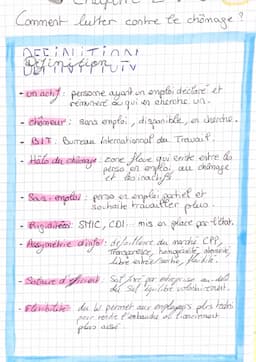 Chapitre
Comment lutter contre le chômage ?
DEFINITION
Définition
- un actif : personne ayant un emploi déclaré et
rémunéré ou qui en cherche un.
- chômeur : sans emploi, disponible, en cherche.
- BIT : Bureau International du Travail.
- Halo du chômage : zone floue qui existe entre les
perso en emploi, au chômage
et les inactifs
- Sous-emploi : perso en emploi partiel et
souhaite travailler plus.
- Rigidités : SMIC, CDI... mis en place par l'état.
- Assymétrie d'info : défaillance du marché CPP,
Transparence, homogénéité, atomicité,
libre entrée/sortie, fluidité.
- Salaire d'efficient : Sal fixé par entreprise au-delà
du Sal équilibre volontairement.
- Flexibilité du W permet aux employeurs plus
pour rendre l'embauche ou licenciement
plus aisé.